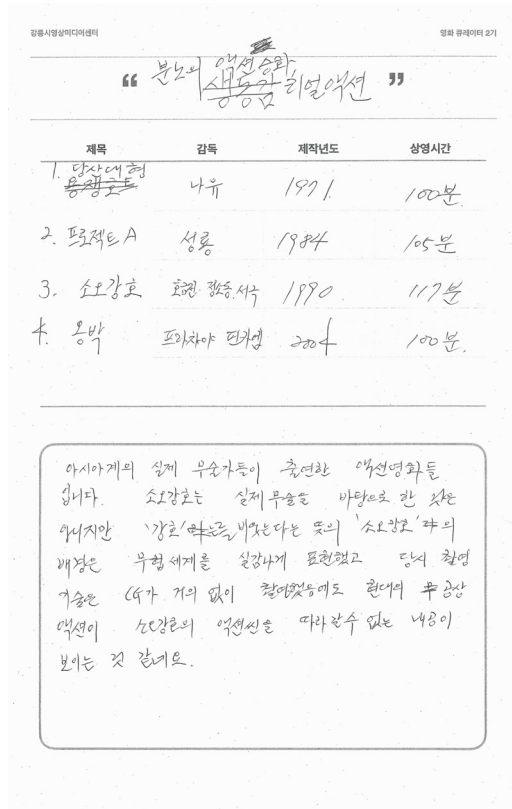 강릉시영상미디어센터
영화 큐레이터 2기
“ 분노의 액션 영화
생동감 리얼액션 ”
제목 감독 제작년도 상영시간
1. 당산대형
용쟁호투 나유 1971. 100분.
2. 프로젝트A 성룡 1984 105분
3. 소오강호 호금전. 정소동. 서극 1990 117분
4. 옹박 프라차야 핀카엡 2004 100분.
아시아계의 실제 무술가들이 출연한 액션영화들
입니다. 소오강호는 실제 무술을 바탕으로 한 것은
아니지만 '강호' 비웃는다는 뜻의 '소오강호'의
배경은 무협세계를 실감나게 표현했고 당시 촬영
기술은 CG가 거의 없이 촬영했음에도 현대의 공상
액션이 소오강호의 액션씬을 따라갈 수 없는 내공이
보이는 것 같네요.